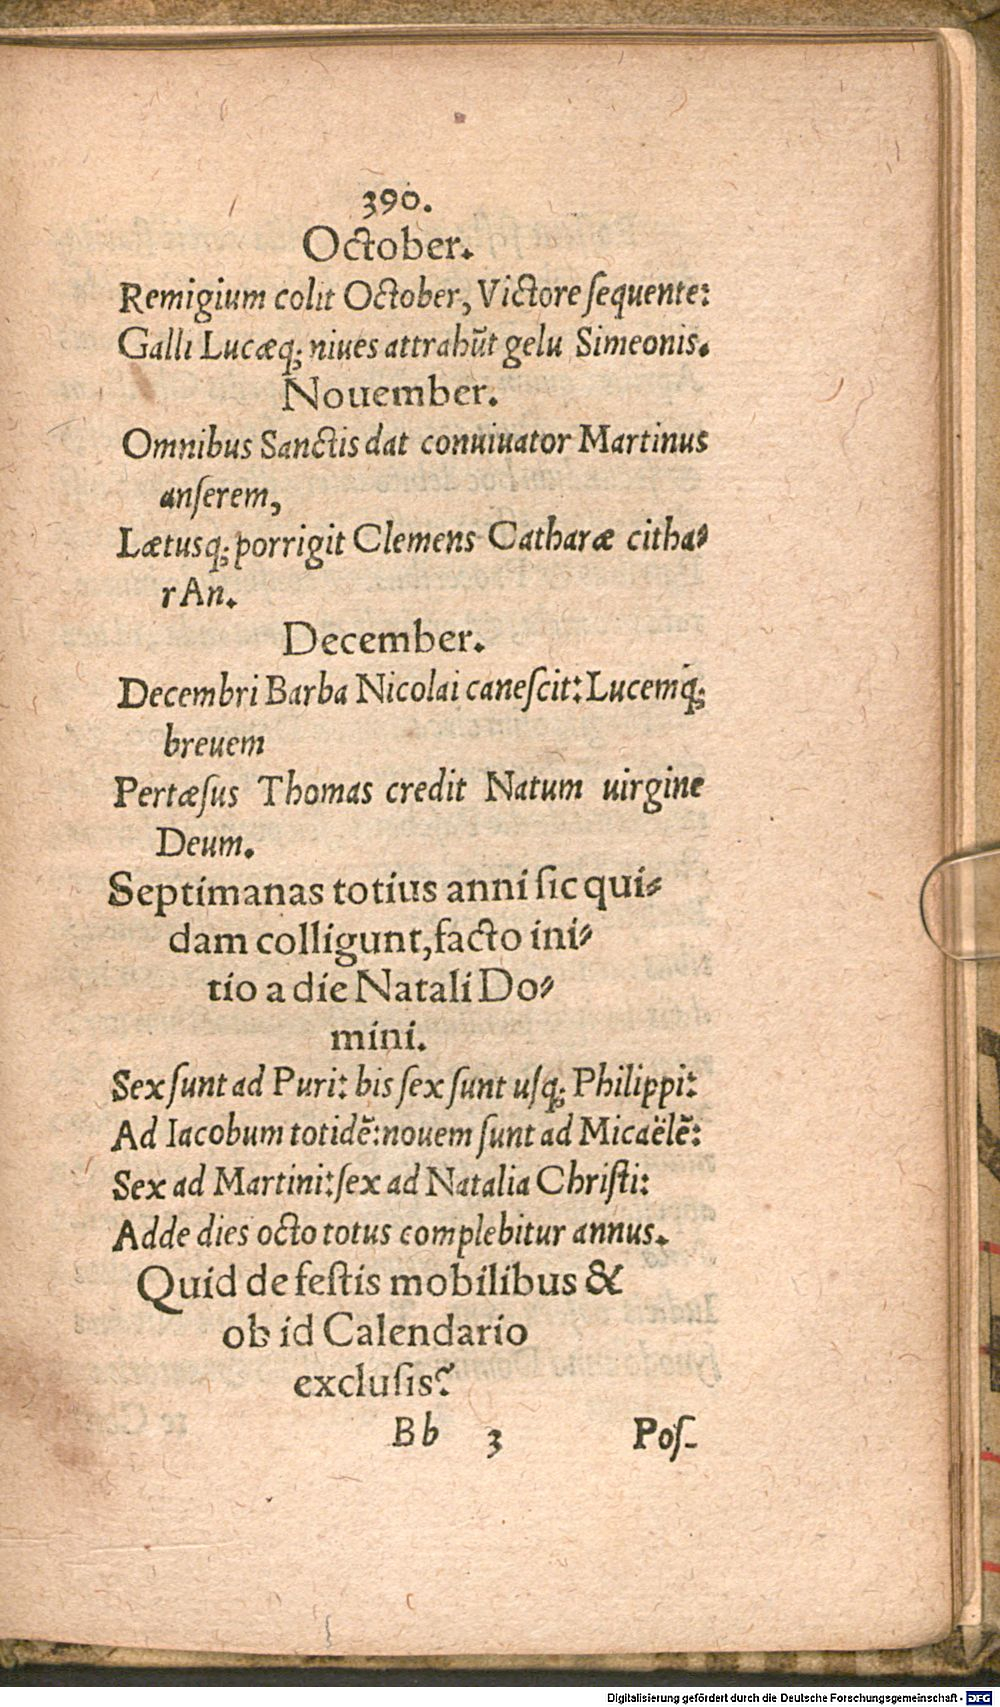 390.
October.
Remigium colit October, Victore ſequente:
Galli Lucæq; niues attrahūt gelu Simeonis.
Nouember.
Omnibus Sanctis dat conuiuator Martinus
anſerem,
Lætusq; porrigit Clemens Catharæ citha⸗
rAn.
December.
Decembri Barba Nicolai caneſcit: Lucemq́;
breuem
Pertæſus Thomas credit Natum uirgine
Deum.
Septimanas totius anni ſic qui⸗
dam colligunt, facto ini⸗
tio a die Natali Do⸗
mini.
Sex ſunt ad Puri: bis ſex ſunt uſq; Philippi:
Ad Iacobum totidē: nouem ſunt ad Micaëlē:
Sex ad Martini: ſex ad Natalia Chriſti:
Adde dies octo totus complebitur annus.
Quid de feſtis mobilibus &
ob id Calendario
excluſis?
Bb 3 Poſ-
Digitalisierung gefördert durch die Deutsche Forschungsgemeinschaft - DFG